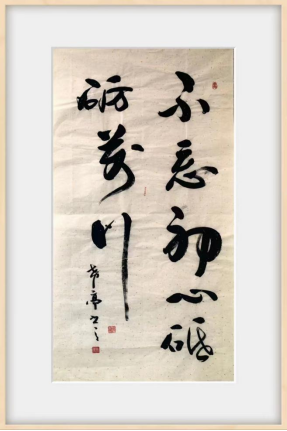 不忘初心砥
砺前行